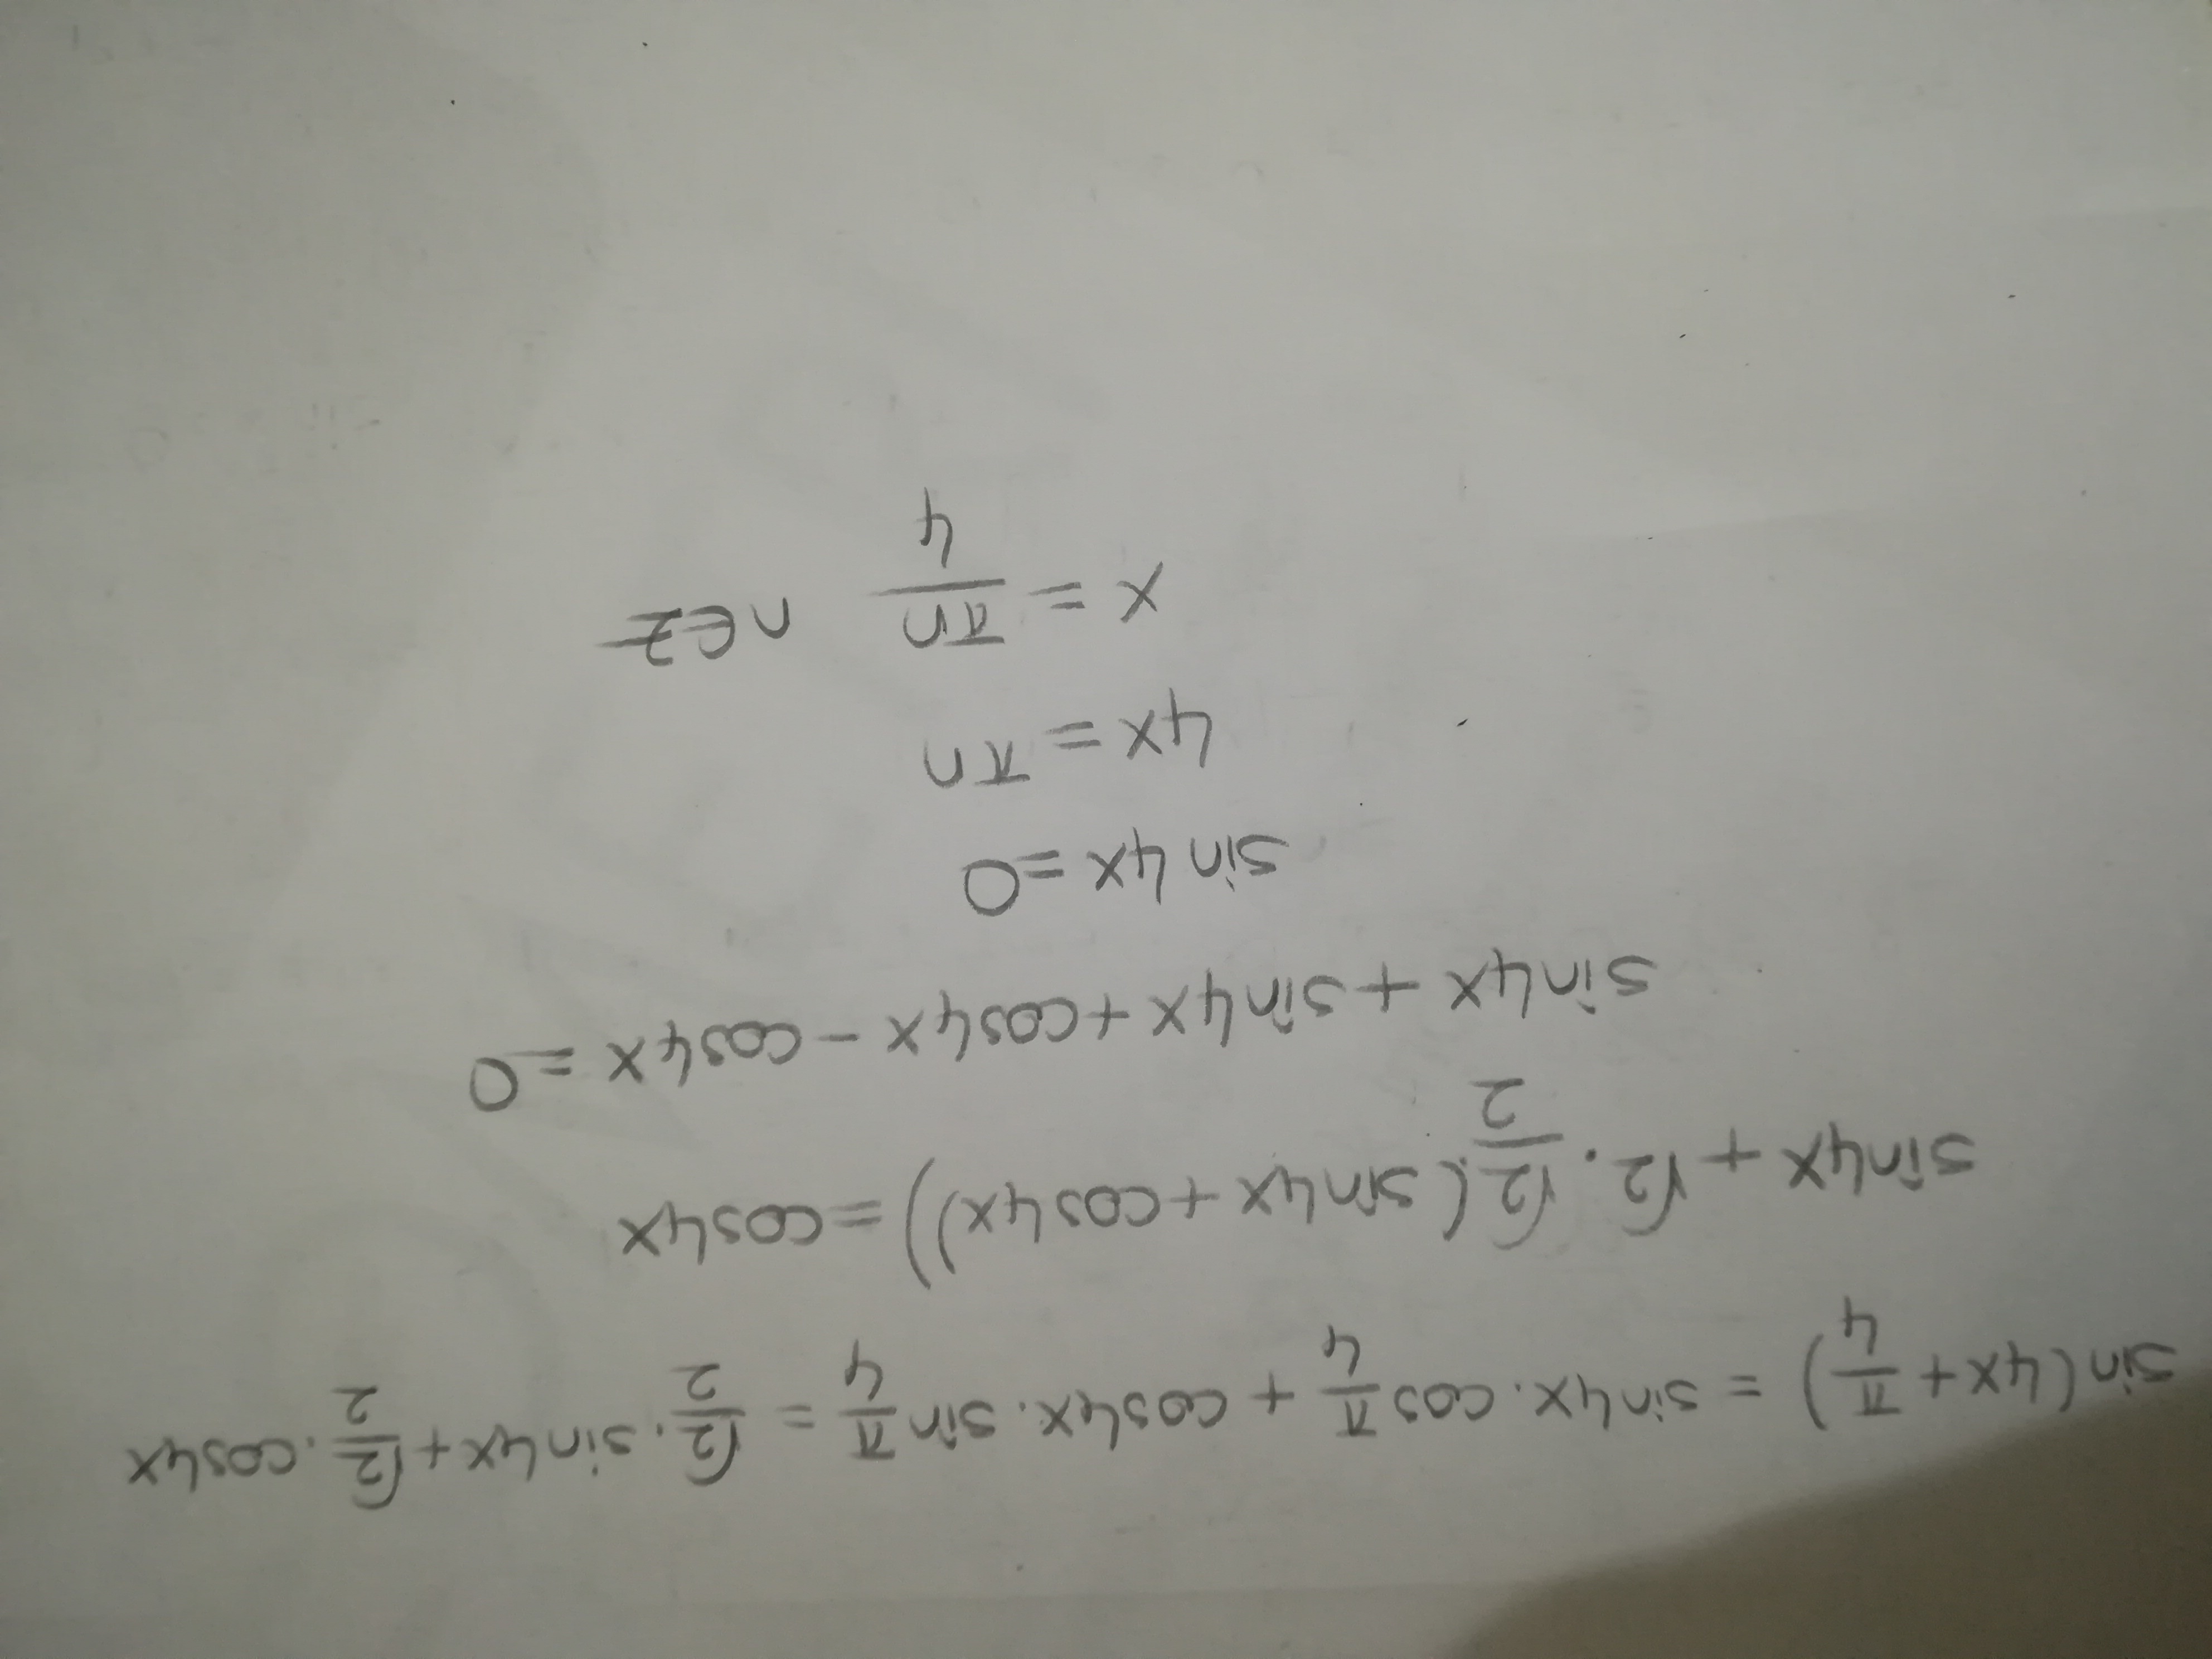 sin(4x+π/4) = sin4x·cos π/4 + cos4x·sin π/4 = √2/2·sin4x+√2/2·cos4x
sin4x+√2·√2/2·(sin4x+cos4x))=cos4x
sin4x+sin4x+cos4x-cos4x=0
sin4x=0
4x=πn
x=πn/4 n∈z